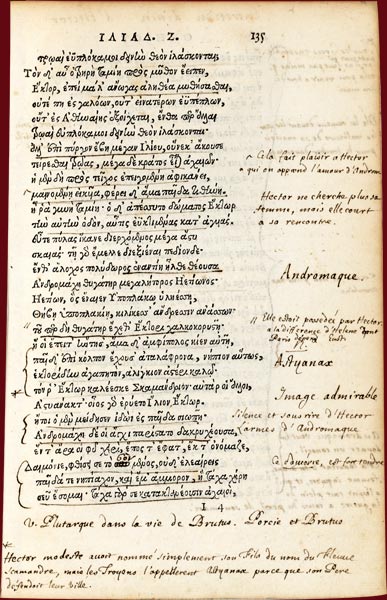 ΙΛΙΑΔ. Ζ. 135
τρωαὶ ἐϋπλόκαμοι δεινὴν θεὸν ἱλάσκονται,
Τὸν δ' αὖ ὀτρηρὴ ταμίη πρὸς μῦθον ἔειπεν,
Ἕκτορ, ἐπεὶ μάλ' ἄνωγας ἀληθέα μυθήσασθαι,
οὔτέ πη ἐς γαλόων, οὔτ' εἰνατέρων εὐπέπλων,
οὔτ' ἐς Ἀθηναίης ἐξοίχεται, ἔνθά περ ἄλλαι
τρωαὶ ἐϋπλόκαμοι δεινὴν θεὸν ἱλάσκονται·
ἀλλ' ἐπὶ πύργον ἔβη μέγαν Ἰλίου, οὕνεκ' ἄκουσε
τείρεσθαι τρῶας, μέγα δὲ κράτος εἶναι ἀχαιῶν.
ἡ μὲν δὴ πρὸς τεῖχος ἐπειγομένη ἀφικάνει,
μαινομένῃ εἰκυῖα, φέρει δ' ἅμα παῖδα τιθήνη.
ἦ ῥα γυνὴ ταμίη· ὁ δ' ἀπέσσυτο δώματος Ἕκτωρ
τὴν αὐτὴν ὁδὸν, αὖτις ἐϋκτιμένας κατ' ἀγυιάς.
εὖτε πύλας ἵκανε διερχόμενος μέγα ἄστυ
σκαιάς· τῇ γὰρ ἔμελλε διεξίμεναι πεδίονδε·
ἔνθ' ἄλοχος πολύδωρος ἐναντίη ἦλθε θέουσα
Ἀνδρομάχη θυγάτηρ μεγαλήτορος Ἠετίωνος·
Ἠετίων, ὃς ἔναιεν Ὑποπλάκῳ ὑληέσσῃ,
Θήβῃ ὑποπλακίῃ, κιλίκεσσ' ἄνδρεσσιν ἀνάσσων·
τοῦ περ δὴ θυγάτηρ ἔχεθ' Ἕκτορι χαλκοκορυστῇ·
ἥ οἱ ἔπειτ' ἤντησ', ἅμα δ' ἀμφίπολος κίεν αὐτῇ,
παῖδ' ἐπὶ κόλπον ἔχουσ' ἀταλάφρονα, νήπιον αὔτως,
ἑκτορίδην ἀγαπητὸν, ἀλίγκιον ἀστέρι καλῷ·
τόν ῥ' Ἕκτωρ καλέεσκε Σκαμάνδριον αὐτὰρ οἱ ἄλλοι,
Ἀστυάνακτ'· οἶος γὰρ ἐρύετο Ἴλιον Ἕκτωρ.
ἤτοι ὁ μὲν μείδησεν ἰδὼν ἐς παῖδα σιωπῇ·
Ἀνδρομάχη δέ οἱ ἄγχι παρίστατο δακρυχέουσα,
ἔν τ' ἄρα οἱ φῦ χειρὶ, ἔπος τ' ἔφατ', ἔκ τ' ὀνόμαζε,
Δαιμόνιε, φθίσει σε τὸ σὸν μένος, οὐδ' ἐλεαίρεις
παῖδά τε νηπίαχον, καὶ ἔμ' ἄμμορον, ἣ τάχα χήρη
σεῦ ἔσομαι· τάχα γάρ σε κατακτενέουσιν ἀχαιοὶ,
I 4
Cela fait plaisir a Hector
qui on apprend l'amour d'Androm
Hector ne cherche plus sa
femme, mais elle court
a sa rencontre.
Andromaque
Elle estoit possedée par Hector
a la difference d'Helene dont
Paris
Astyanax
Image admirable
Silence et sousrire d'Hector
Larmes d'Andromaque
Ce discours, est fort tendre
v. Plutarque dans la vie de Brutus. Porcie et Brutus
* Hector modeste avoit nommé simplement son Fils du nom du Fleuve
Scamandre, mais les Troyens l'appellerent Astyanax parce que son Pere
defendoit leur ville.